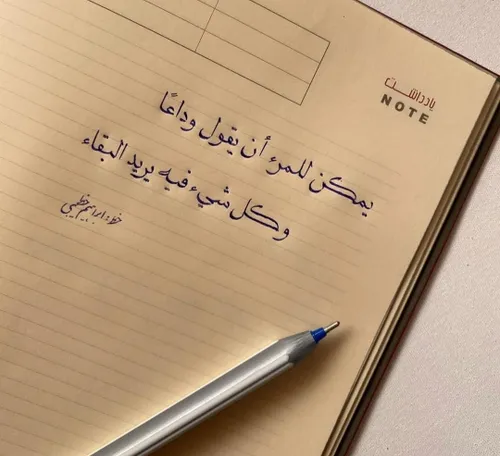 یادداشت
NOTE
يمكن للمرء أن يقول وداعًا
وكل شيء فيه يريد البقاء
خط: ابراهيم خطيبي